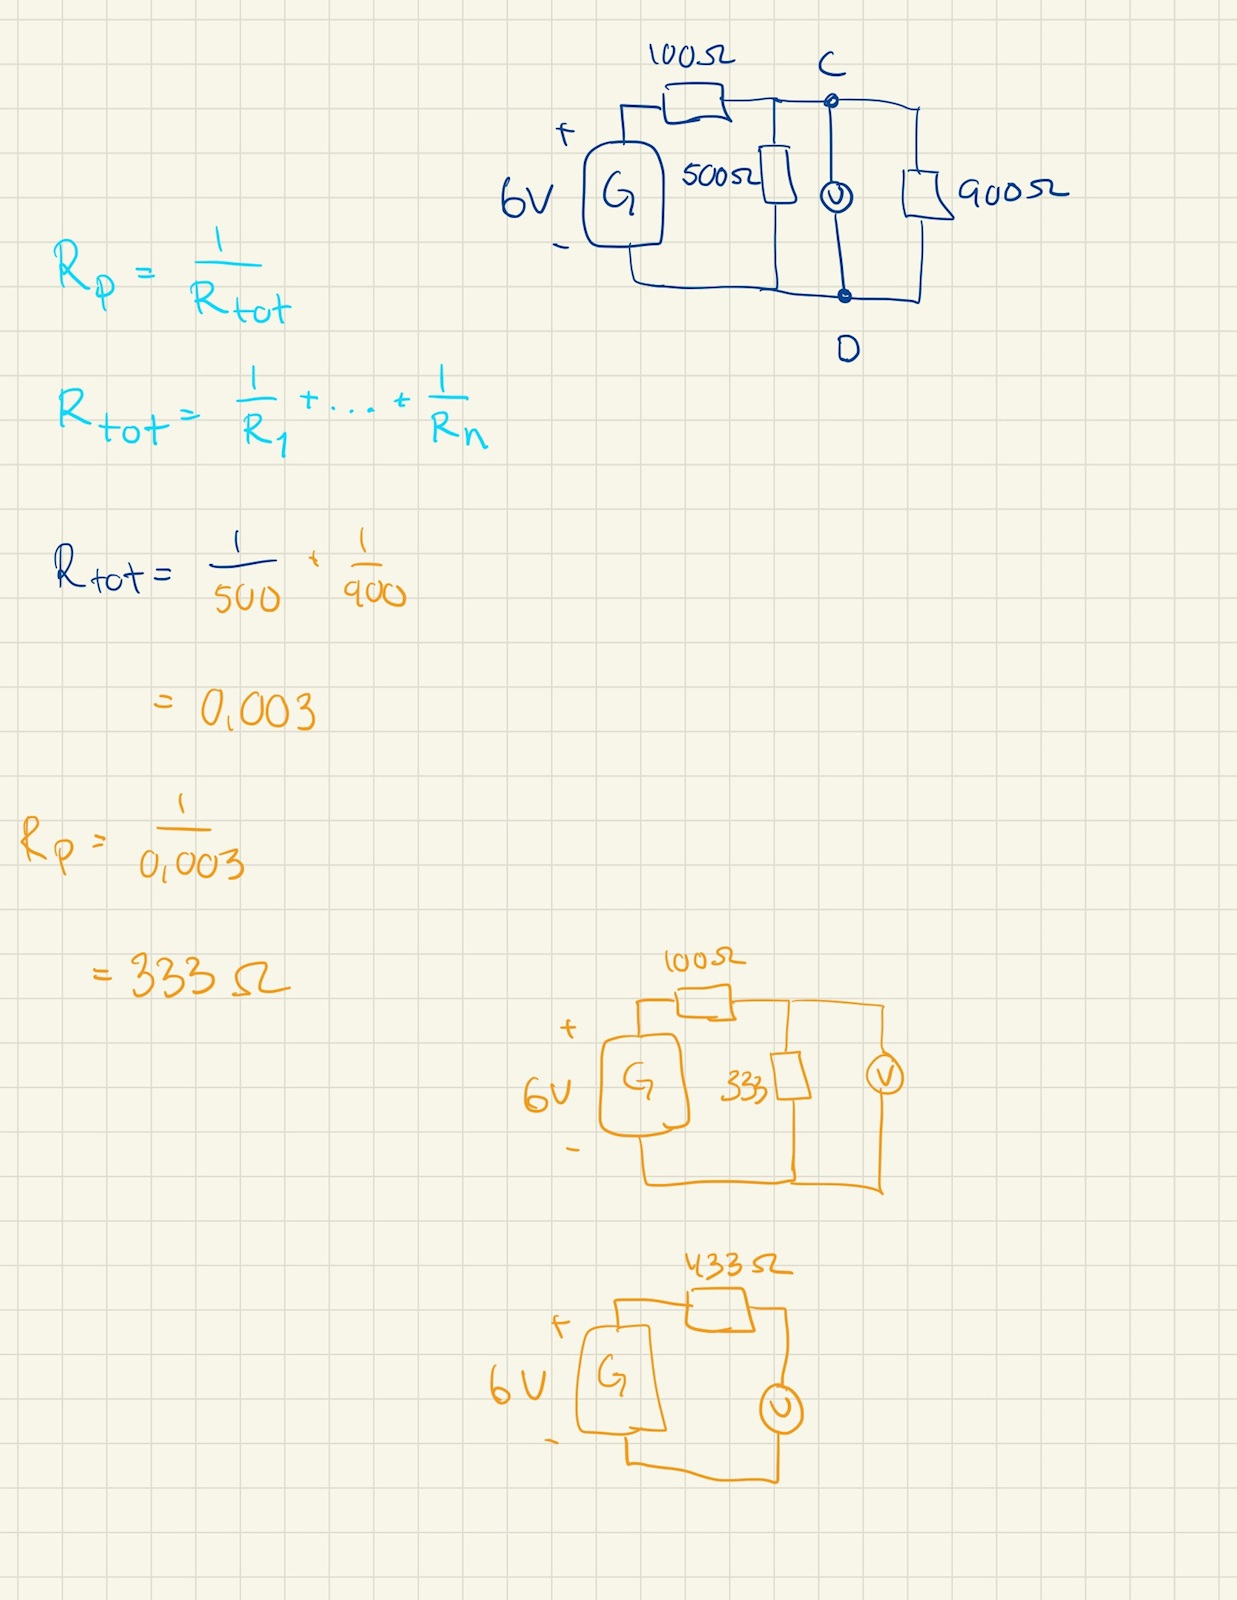 100Ω
C
+
6V
G
500Ω
V
900Ω
-
D
Rp = 1/Rtot
Rtot = 1/R1 + ... + 1/Rn
Rtot = 1/500 + 1/900
= 0,003
Rp = 1/0,003
= 333 Ω
100Ω
+
6V
G
333
V
-
433Ω
+
6V
G
V
-